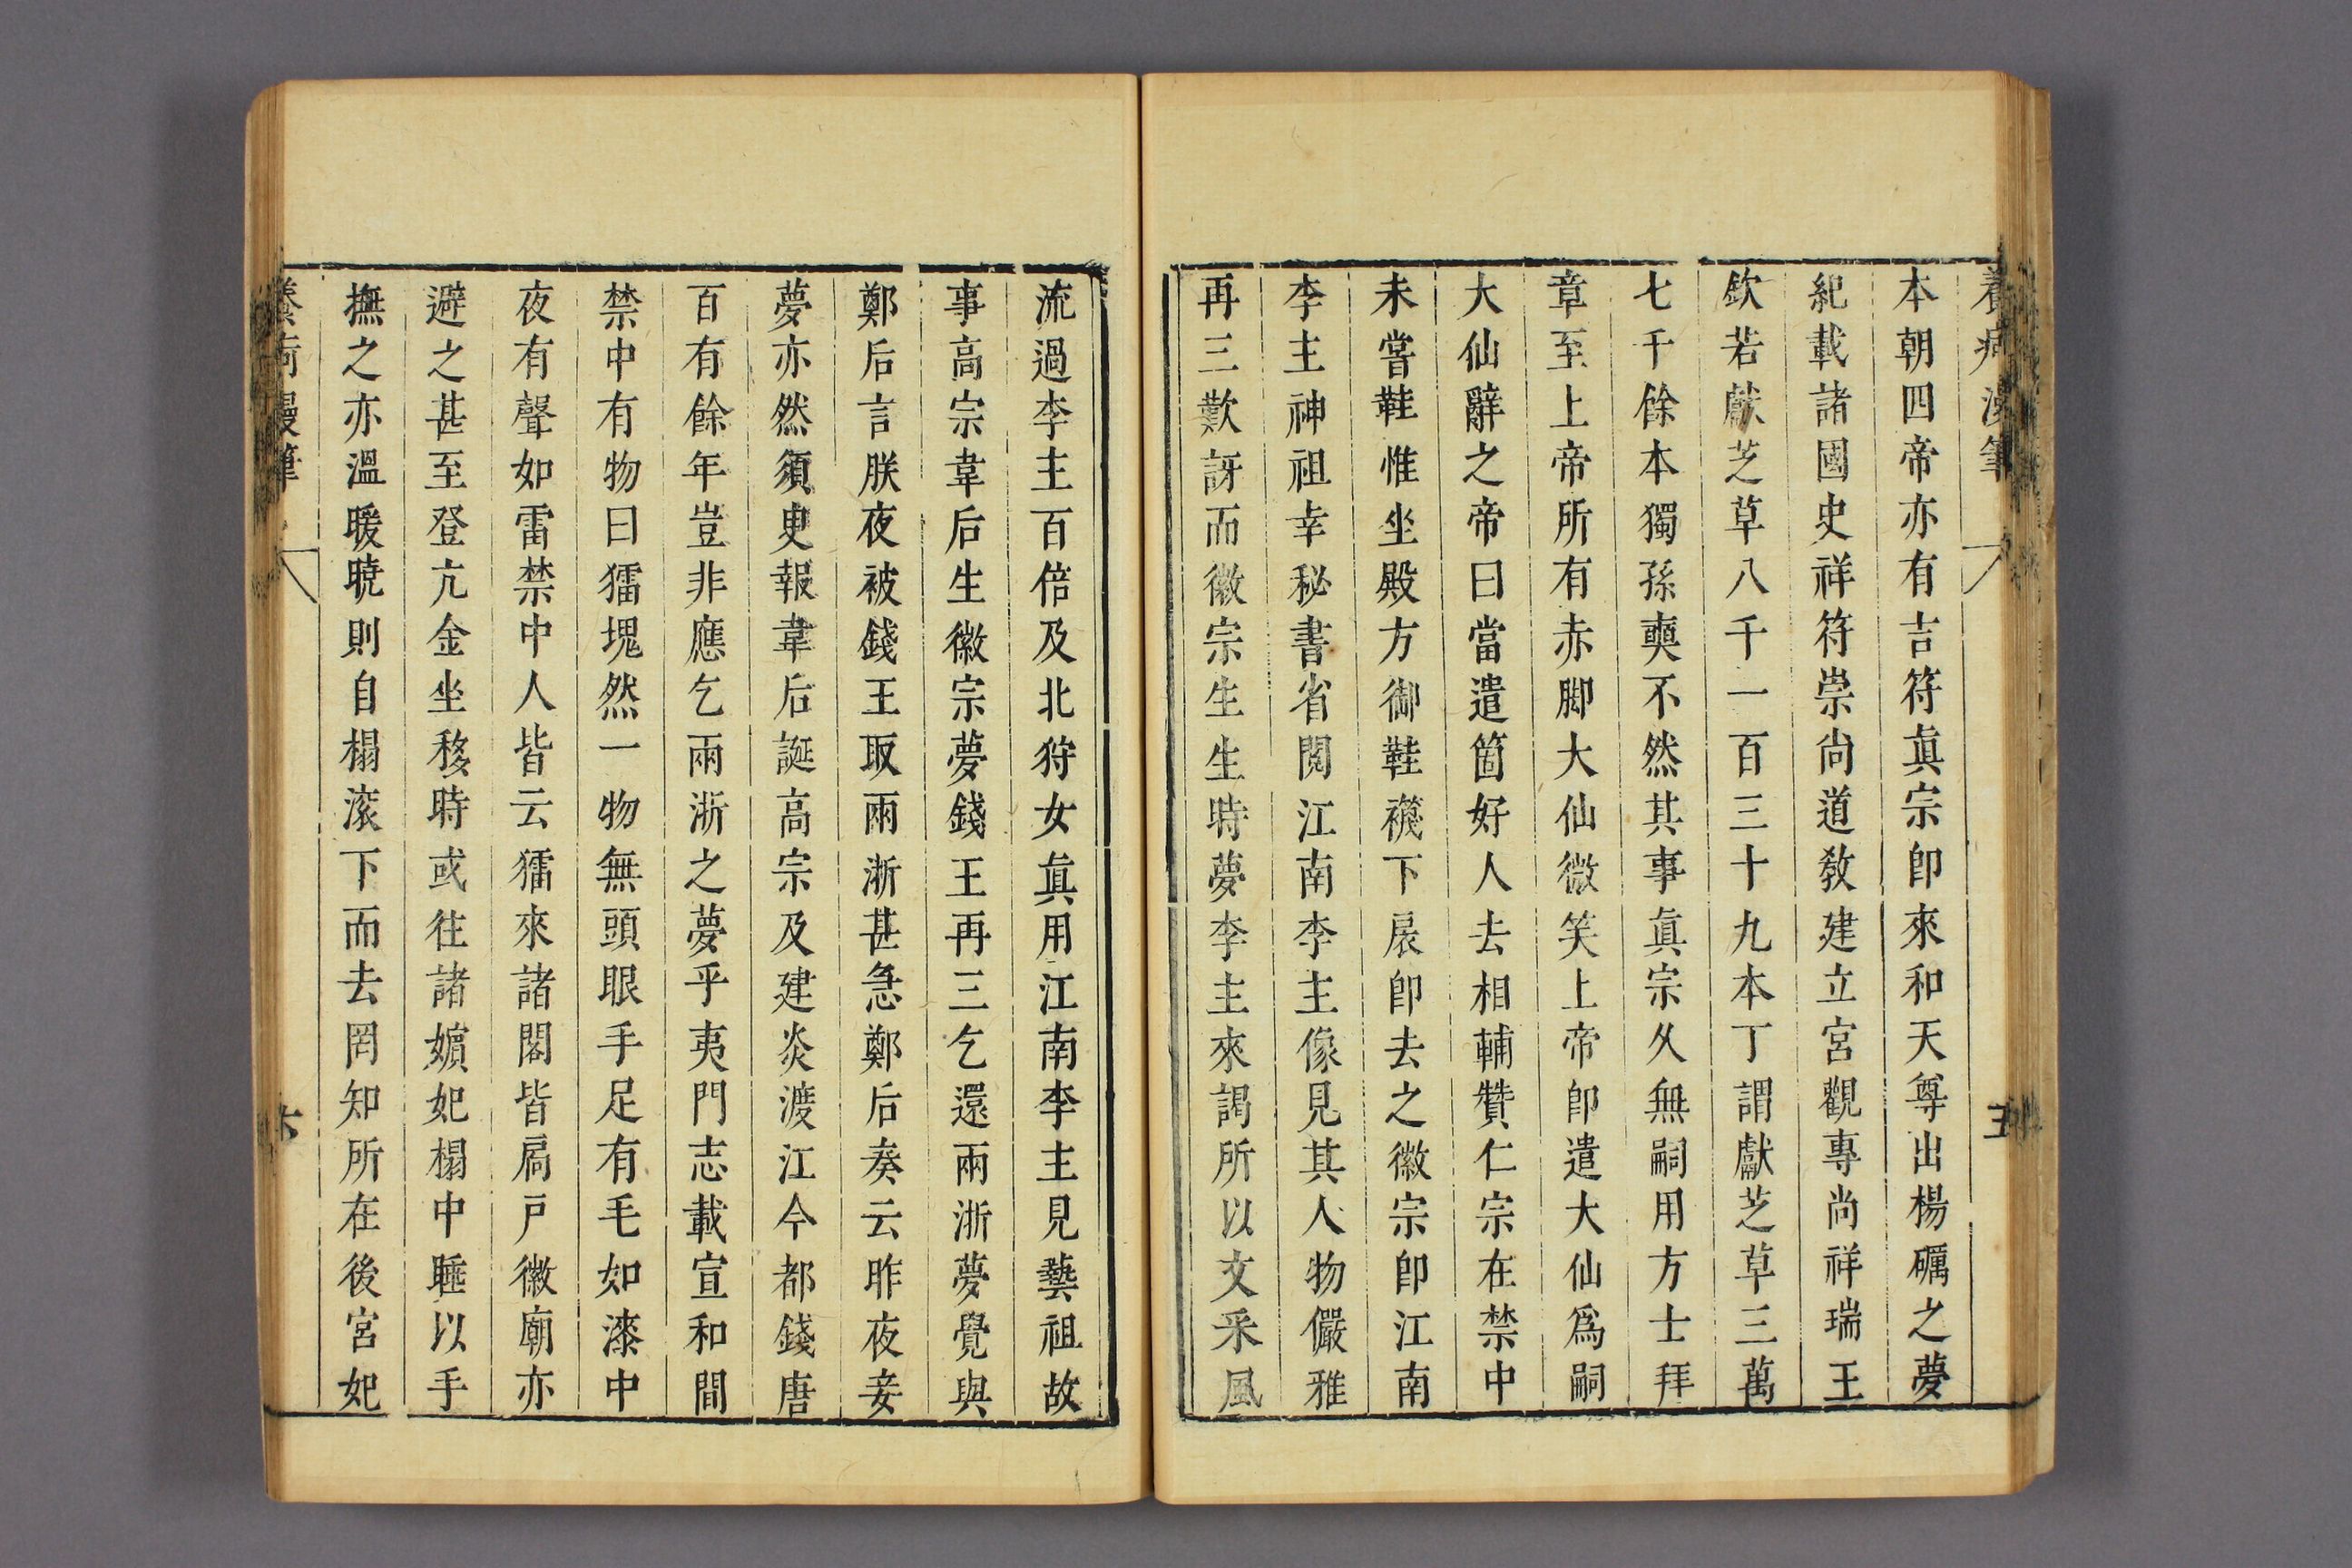 養疴漫筆
五
本朝四帝亦有吉符眞宗卽來和天尊出楊礪之夢
紀載諸國史祥符崇尚道敎建立宮觀專尚祥瑞王
欽若獻芝草八千一百三十九本丁謂獻芝草三萬
七千餘本獨孫奭不然其事眞宗久無嗣用方士拜
章至上帝所有赤脚大仙微笑上帝卽遣大仙爲嗣
大仙辭之帝曰當遣箇好人去相輔贊仁宗在禁中
未嘗鞋惟坐殿方御鞋襪下展卽去之徽宗卽江南
李主神祖幸秘書省閱江南李主像見其人物儼雅
再三歎訝而徽宗生生時夢李主來謁所以文采風
流過李主百倍及北狩女眞用江南李主見藝祖故
事高宗韋后生徽宗夢錢王再三乞還兩浙夢覺與
鄭后言朕夜被錢王取兩浙甚急鄭后奏云昨夜妾
夢亦然須臾報韋后誕高宗及建炎渡江今都錢唐
百有餘年豈非應乞兩浙之夢乎夷門志載宣和間
禁中有物曰獝塊然一物無頭眼手足有毛如漆中
夜有聲如雷禁中人皆云獝來諸閣皆扃戸徽廟亦
避之甚至登亢金坐移時或往諸嬪妃榻中睡以手
撫之亦溫暖曉則自榻滚下而去罔知所在後宮妃
養疴漫筆
六